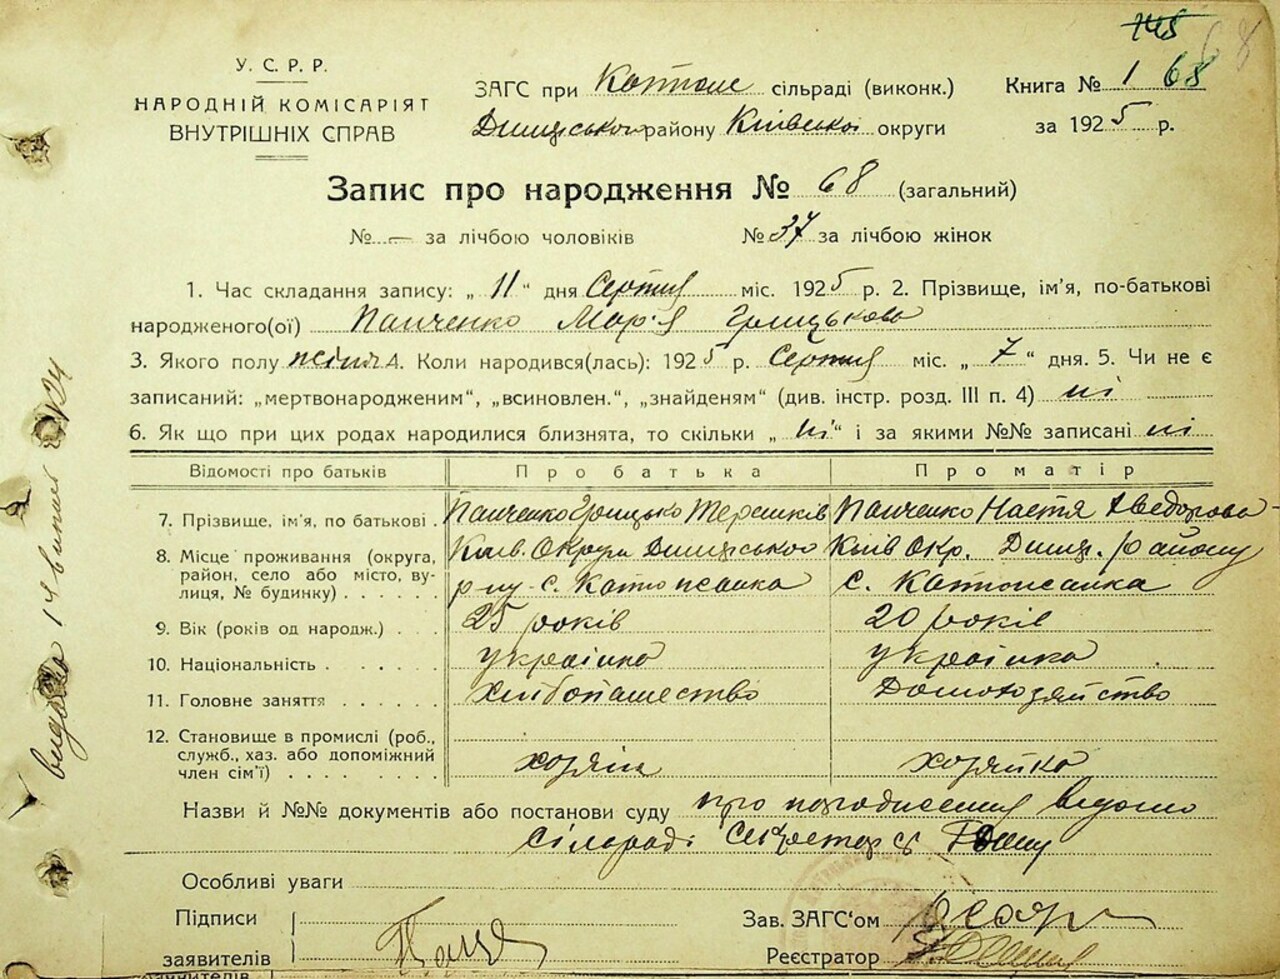 145
68
У. С. Р. Р.
НАРОДНІЙ КОМІСАРІЯТ
ВНУТРІШНІХ СПРАВ
ЗАГС при сільраді (виконк.)
району Київської округи
Книга № 1 68
за 1925 р.
Запис про народження № 68 (загальний)
№ — за лічбою чоловіків № 37 за лічбою жінок
1. Час складання запису: „ 11 “ дня Серпня міс. 1925 р. 2. Прізвище, ім’я, по-батькові
народженого(ої) Панченко Мар’я Грицькова
3. Якого полу жіноч 4. Коли народився(лась): 1925 р. Серпня міс. „ 7 “ дня. 5. Чи не є
записаний: „мертвонародженим“, „всиновлен.“, „знайденям“ (див. інстр. розд. III п. 4) ні
6. Як що при цих родах народилися близнята, то скільки „ ні “ і за якими №№ записані ні
Відомості про батьків Про батька Про матір
7. Прізвище, ім’я, по батькові . Панченко Грицько Терешків Панченко Настя Хведорова
8. Місце проживання (округа, Київ. Округи Київ Окр. району
район, село або місто, ву- р-ну с. с.
лиця, № будинку) . . . . .
9. Вік (років од народж.) . . . 25 років 20 років
10. Національність . . . . . . українец українка
11. Головне заняття . . . . . . хлібопашество Домохозяйство
12. Становище в промислі (роб.,
служб., хаз. або допоміжний
член сім’ї) . . . . . . . . хозяїн хозяйка
Назви й №№ документів або постанови суду про
Сільраді Секретар
Особливі уваги
Підписи
заявителів
Зав. ЗАГС‘ом
Реєстратор